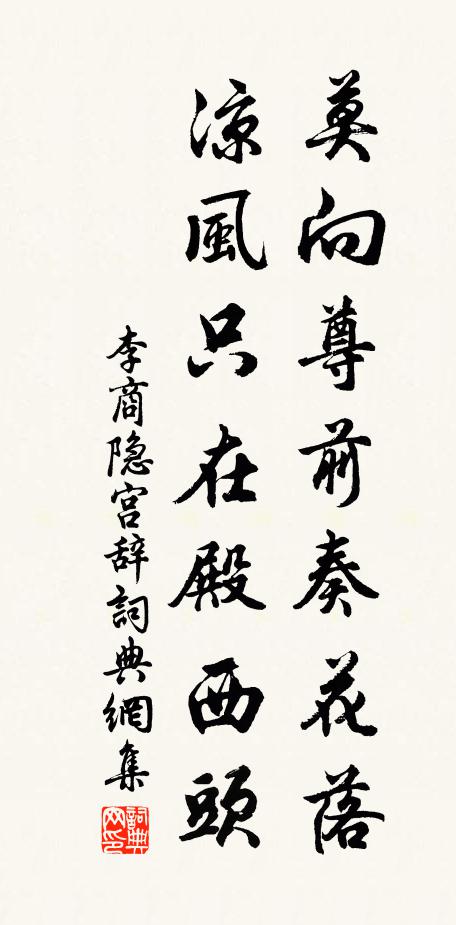 莫向尊前奏花落
凉風只在殿西頭
李商隐宫辞詞典網集
詞典網印